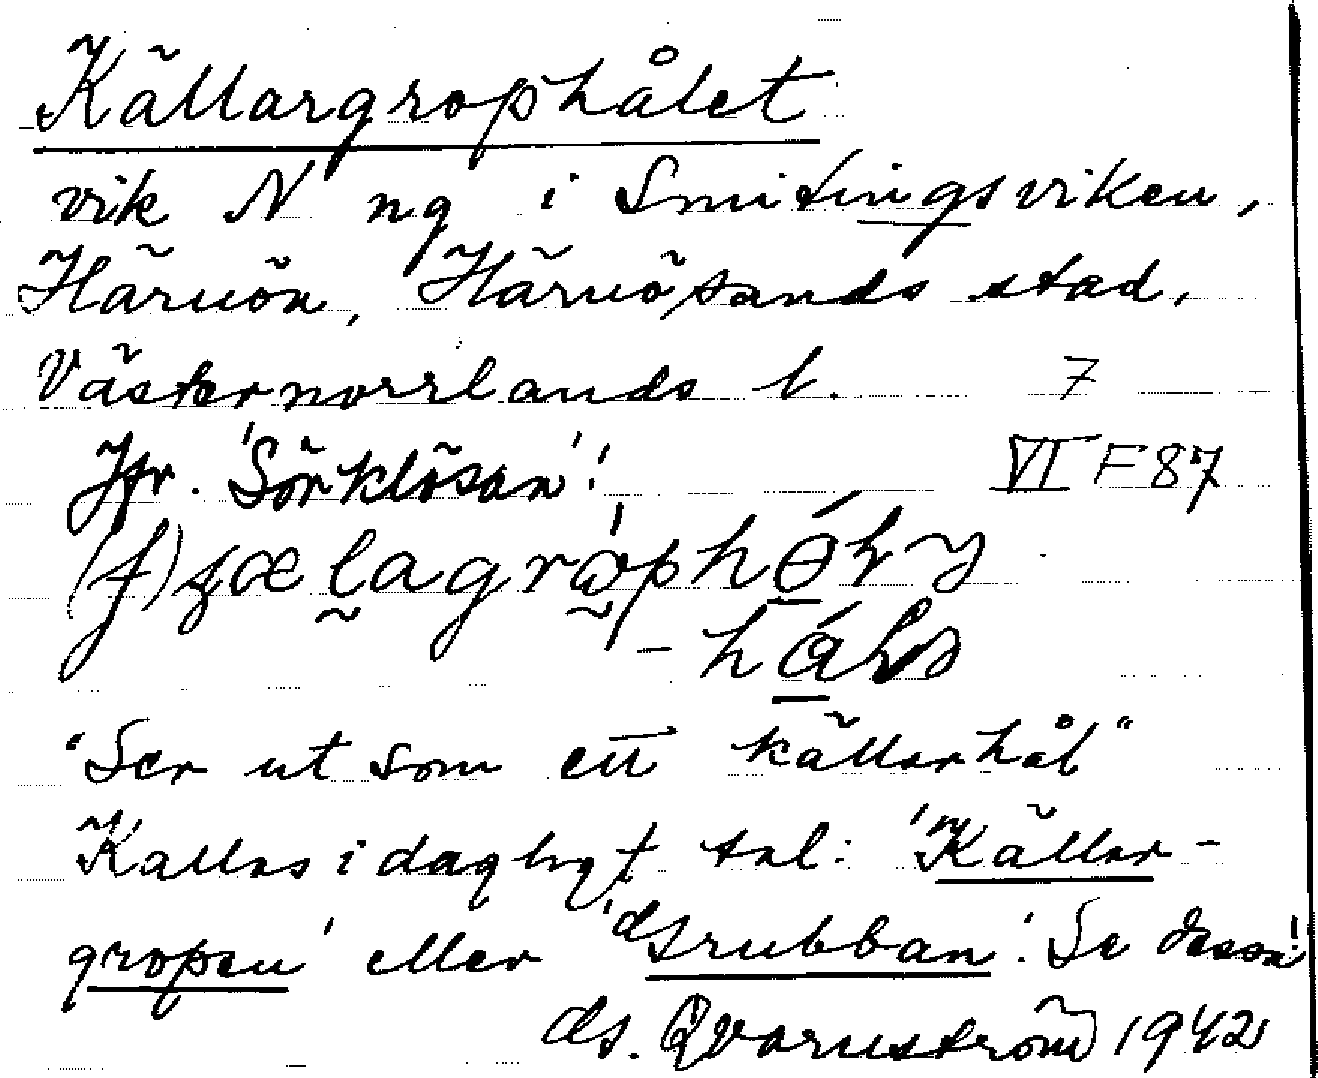 Källargrophålet
vik N ng i Smitingsviken,
Härnön, Härnösands stad,
Västernorrlands l. 7
Jfr. 'Sörklösan'! VI F 87
-
"Ser ut som ett källarhål"
Kallas i dagligt tal: 'Källar-
gropen' eller 'Grubban'. Se dessa!
ds. Qvarnström 1942